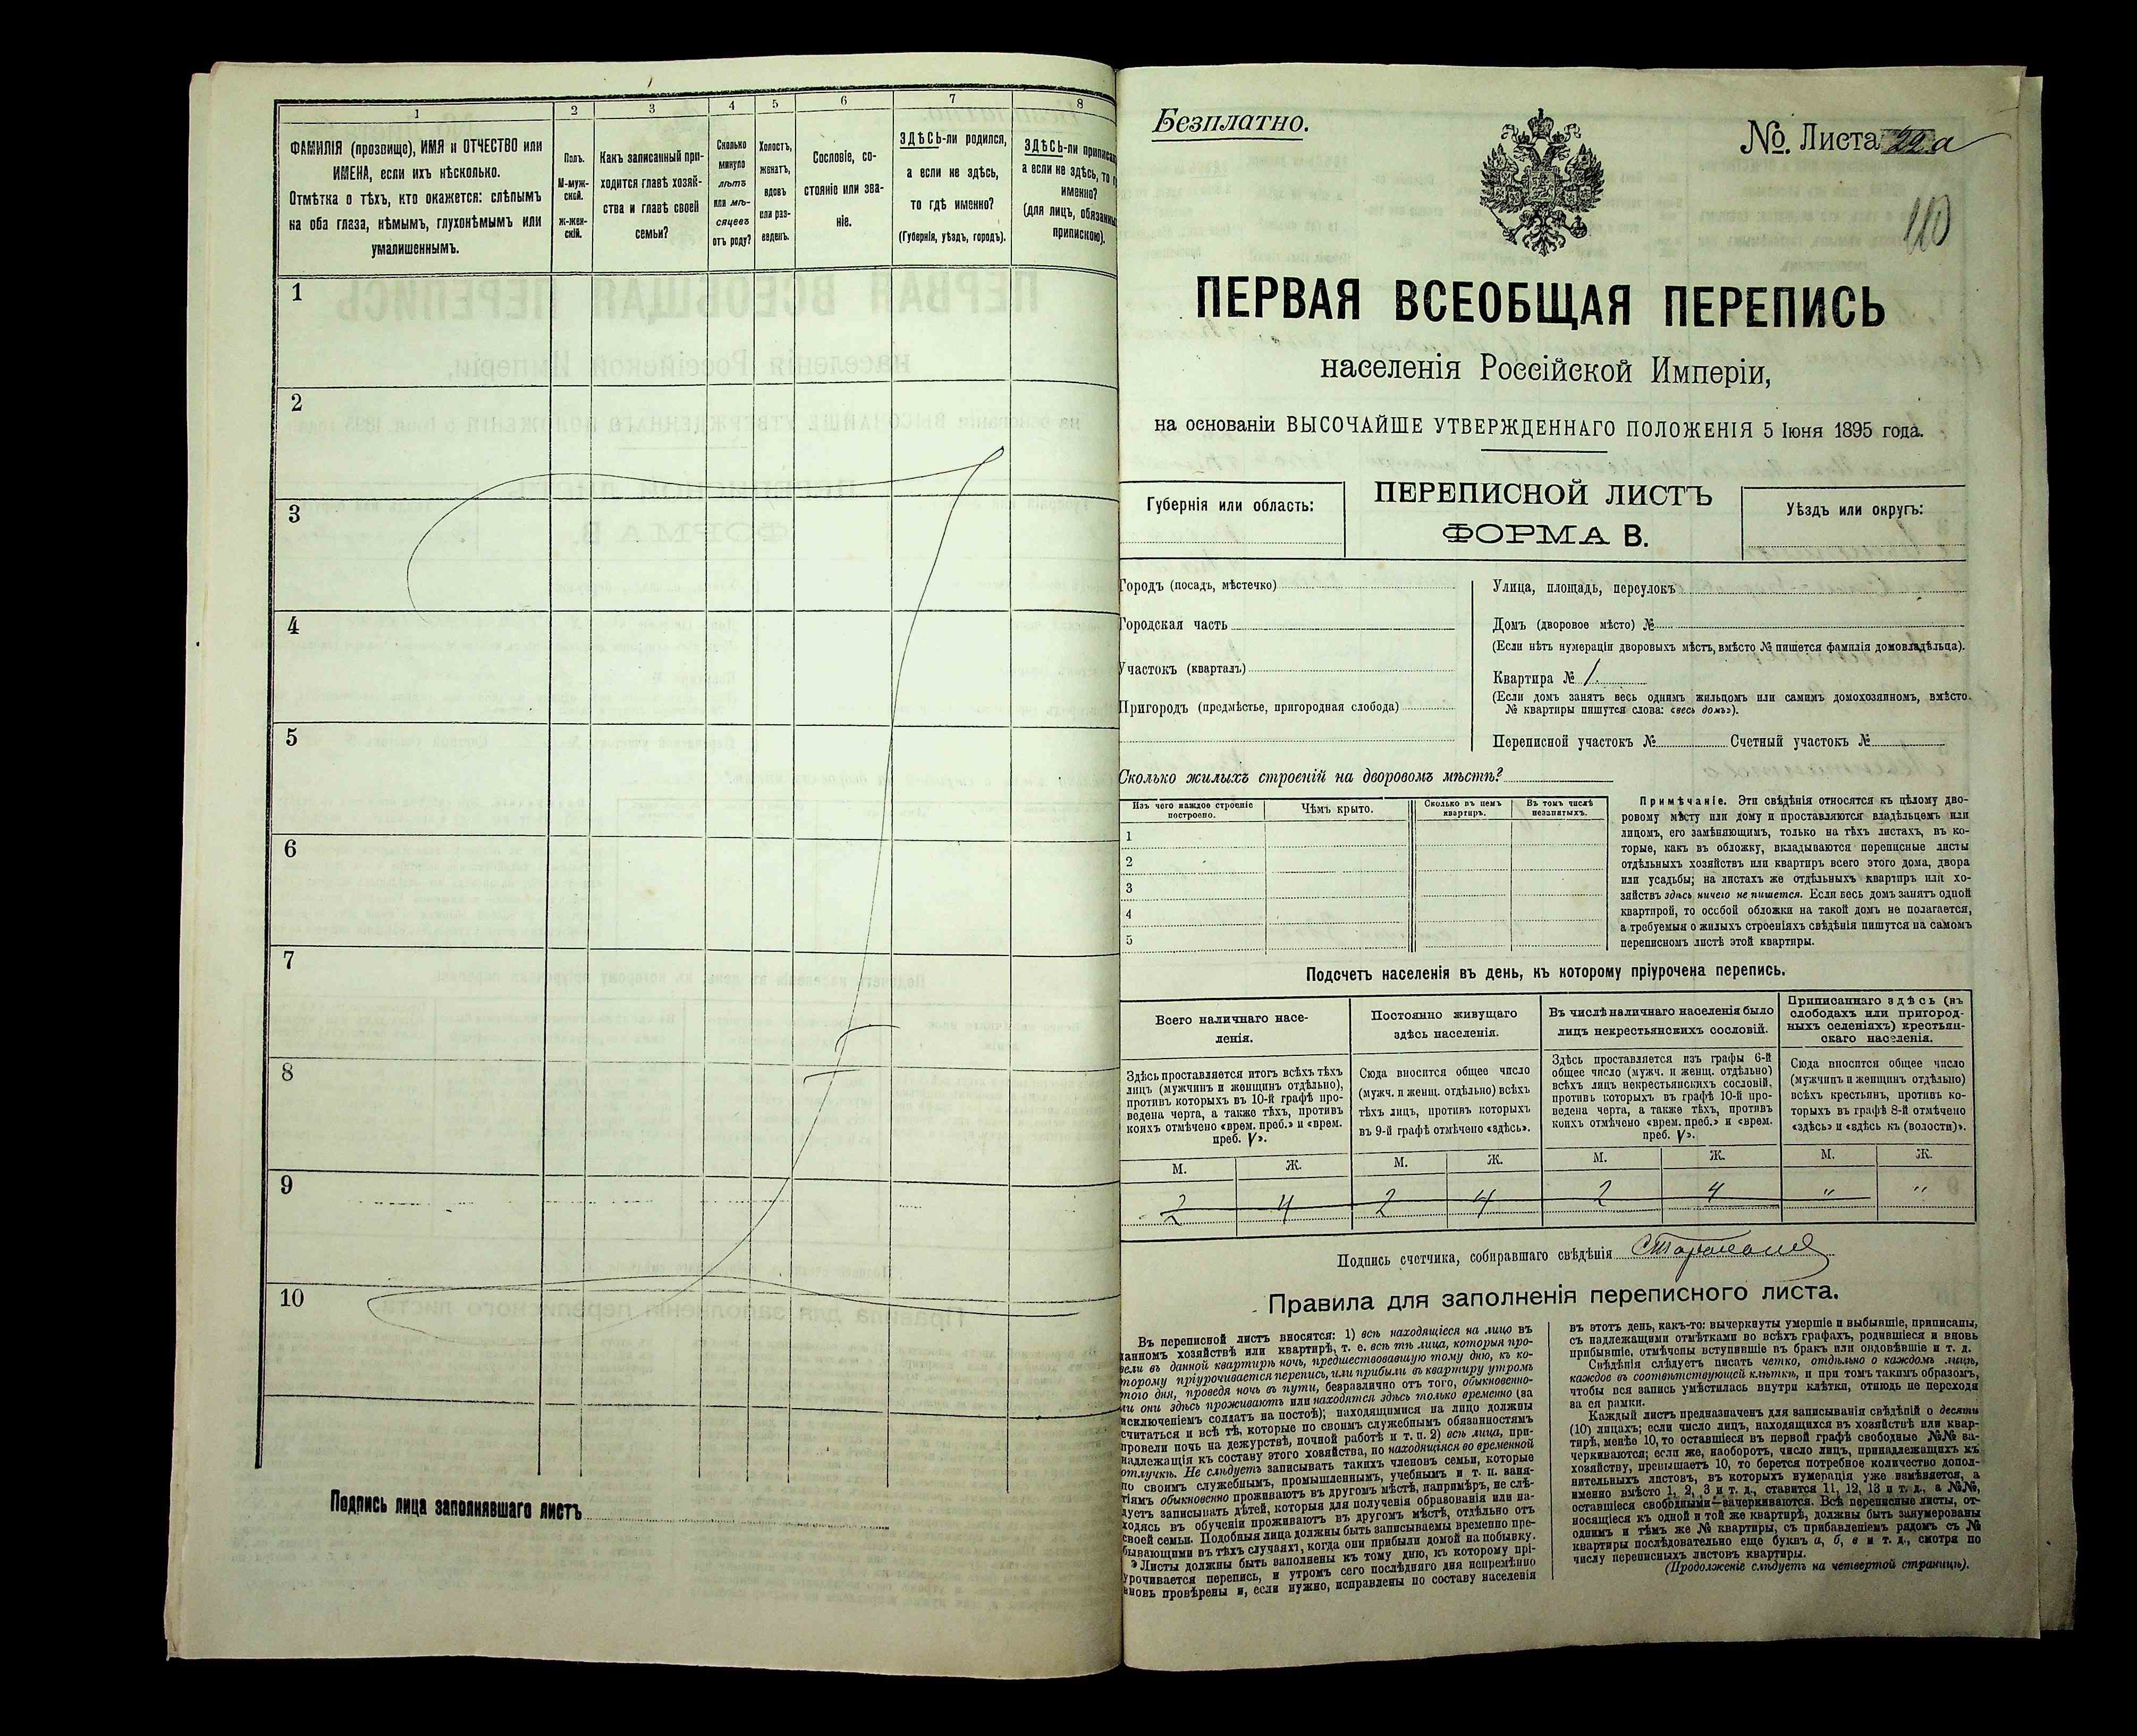 1
2
3
4
5
6
7
8
ФАМИЛІЯ (прозвище), ИМЯ и ОТЧЕСТВО или
ИМЕНА, если ихъ нѣсколько.
Отмѣтка о тѣхъ, кто окажется: слѣпымъ
на оба глаза, нѣмымъ, глухонѣмымъ или
умалишеннымъ.
Полъ.
М-муж-
ской.
ж-жен-
скій.
Какъ записанный при-
ходится главѣ хозяй-
ства и главѣ своей
семьи?
Сколько
минуло
лѣтъ
или мѣ-
сяцевъ
отъ роду?
Холостъ,
женатъ,
вдовъ
или раз-
веденъ.
Сословіе, со-
стояніе или зва-
ніе.
ЗДѢСЬ-ли родился,
а если не здѣсь,
то гдѣ именно?
(Губернія, уѣздъ, городъ).
ЗДѢСЬ-ли
а если не здѣсь, то
именно?
(для лицъ,
припискою).
1
2
3
4
5
6
7
8
9
10
Подпись лица заполнявшаго листъ
Безплатно.
№. Листа 22а
110
ПЕРВАЯ ВСЕОБЩАЯ ПЕРЕПИСЬ
населенія Россійской Имперіи,
на основаніи ВЫСОЧАЙШЕ УТВЕРЖДЕННАГО ПОЛОЖЕНІЯ 5 Іюня 1895 года.
Губернія или область:
ПЕРЕПИСНОЙ ЛИСТЪ
ФОРМА В.
Уѣздъ или округъ:
Городъ (посадъ, мѣстечко)
Городская часть
Участокъ (кварталъ)
Пригородъ (предмѣстье, пригородная слобода)
Улица, площадь, переулокъ
Домъ (дворовое мѣсто) №
(Если нѣтъ нумераціи дворовыхъ мѣстъ, вмѣсто № пишется фамилія домовладѣльца).
Квартира № 1.
(Если домъ занятъ весь однимъ жильцомъ или самимъ домохозяиномъ, вмѣсто
№ квартиры пишутся слова: «весь домъ»).
Переписной участокъ № Счетный участокъ №
Сколько жилыхъ строеній на дворовомъ мѣстѣ?
Изъ чего каждое строеніе
построено.
Чѣмъ крыто.
Сколько въ немъ
квартиръ.
Въ томъ числѣ
незанятыхъ.
1
2
3
4
5
Примѣчаніе. Эти свѣдѣнія относятся къ цѣлому дво-
ровому мѣсту или дому и проставляются владѣльцемъ или
лицомъ, его замѣняющимъ, только на тѣхъ листахъ, въ ко-
торые, какъ въ обложку, вкладываются переписные листы
отдѣльныхъ хозяйствъ или квартиръ всего этого дома, двора
или усадьбы; на листахъ же отдѣльныхъ квартиръ или хо-
зяйствъ здѣсь ничего не пишется. Если весь домъ занятъ одной
квартирой, то особой обложки на такой домъ не полагается,
а требуемыя о жилыхъ строеніяхъ свѣдѣнія пишутся на самомъ
переписномъ листѣ этой квартиры.
Подсчетъ населенія въ день, къ которому пріурочена перепись.
Всего наличнаго насе-
ленія.
Постоянно живущаго
здѣсь населенія.
Въ числѣ наличнаго населенія было
лицъ некрестьянскихъ сословій.
Приписаннаго здѣсь (въ
слободахъ или пригород-
ныхъ селеніяхъ) крестьян-
скаго населенія.
Здѣсь проставляется итогъ всѣхъ тѣхъ
лицъ (мужчинъ и женщинъ отдѣльно),
противъ которыхъ въ 10-й графѣ про-
ведена черта, а также тѣхъ, противъ
коихъ отмѣчено «врем. преб.» и «врем.
преб. V».
Сюда вносится общее число
(мужч. и женщ. отдѣльно) всѣхъ
тѣхъ лицъ, противъ которыхъ
въ 9-й графѣ отмѣчено «здѣсь».
Здѣсь проставляется изъ графы 6-й
общее число (мужч. и женщ. отдѣльно)
всѣхъ лицъ некрестьянскихъ сословій,
противъ которыхъ въ графѣ 10-й про-
ведена черта, а также тѣхъ, противъ
коихъ отмѣчено «врем. преб.» и «врем.
преб. V».
Сюда вносится общее число
(мужчинъ и женщинъ отдѣльно)
всѣхъ крестьянъ, противъ ко-
торыхъ въ графѣ 8-й отмѣчено
«здѣсь» и «здѣсь къ (волости)».
М. Ж. М. Ж. М. Ж. М. Ж.
2 4 2 4 2 4 " "
Подпись счетчика, собиравшаго свѣдѣнія
Правила для заполненія переписного листа.
Въ переписной листъ вносятся: 1) всѣ находящіеся на лицо въ
данномъ хозяйствѣ или квартирѣ, т. е. всѣ тѣ лица, которыя про-
вели въ данной квартирѣ ночь, предшествовавшую тому дню, къ ко-
торому пріурочивается перепись, или прибыли въ квартиру утромъ
того дня, проведя ночь въ пути, безразлично отъ того, обыкновенно-
ли они здѣсь проживаютъ или находятся здѣсь только временно (за
исключеніемъ солдатъ на постоѣ); находящимися на лицо должны
считаться и всѣ тѣ, которые по своимъ служебнымъ обязанностямъ
провели ночь на дежурствѣ, ночной работѣ и т. п. 2) всѣ лица, при-
надлежащія къ составу этого хозяйства, но находящіяся во временной
отлучкѣ. Не слѣдуетъ записывать такихъ членовъ семьи, которые
по своимъ служебнымъ, промышленнымъ, учебнымъ и т. п. заня-
тіямъ обыкновенно проживаютъ въ другомъ мѣстѣ, напримѣръ, не слѣ-
дуетъ записывать дѣтей, которыя для полученія образованія или на-
ходясь въ обученіи проживаютъ въ другомъ мѣстѣ, отдѣльно отъ
своей семьи. Подобныя лица должны быть записываемы временно пре-
бывающими въ тѣхъ случаяхъ, когда они прибыли домой на побывку.
Листы должны быть заполнены къ тому дню, къ которому прі-
урочивается перепись, и утромъ сего послѣдняго дня непремѣнно
вновь провѣрены и, если нужно, исправлены по составу населенія
въ этотъ день, какъ-то: вычеркнуты умершіе и выбывшіе, приписаны,
съ надлежащими отмѣтками во всѣхъ графахъ, родившіеся и вновь
прибывшіе, отмѣчены вступившіе въ бракъ или овдовѣвшіе и т. д.
Свѣдѣнія слѣдуетъ писать четко, отдѣльно о каждомъ лицѣ,
каждое въ соотвѣтствующей клѣткѣ, и при томъ такимъ образомъ,
чтобы вся запись умѣстилась внутри клѣтки, отнюдь не переходя
за ея рамки.
Каждый листъ предназначенъ для записыванія свѣдѣній о десяти
(10) лицахъ; если число лицъ, находящихся въ хозяйствѣ или квар-
тирѣ, менѣе 10, то оставшіеся въ первой графѣ свободные №№ за-
черкиваются; если же, наоборотъ, число лицъ, принадлежащихъ къ
хозяйству, превышаетъ 10, то берется потребное количество допол-
нительныхъ листовъ, въ которыхъ нумерація уже измѣняется, а
именно вмѣсто 1, 2, 3 и т. д., ставится 11, 12, 13 и т. д., а №№,
оставшіеся свободными—зачеркиваются. Всѣ переписные листы, от-
носящіеся къ одной и той же квартирѣ, должны быть занумерованы
однимъ и тѣмъ же № квартиры, съ прибавленіемъ рядомъ съ №
квартиры послѣдовательно еще буквъ а, б, в и т. д., смотря по
числу переписныхъ листовъ квартиры.
(Продолженіе слѣдуетъ на четвертой страницѣ).